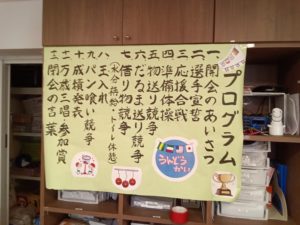 プログラム
一 開会のあいさつ
二 選手宣誓
三 応援合戦
四 準備体操
五 物送り競争
六 だるま送り競争
七 借り物競争
(水分補給・トイレ休憩)
八 玉入れ
九 パン喰い競争
十 成績発表
十一 万歳三唱 参加賞
十二 閉会の言葉
うんどう
かい